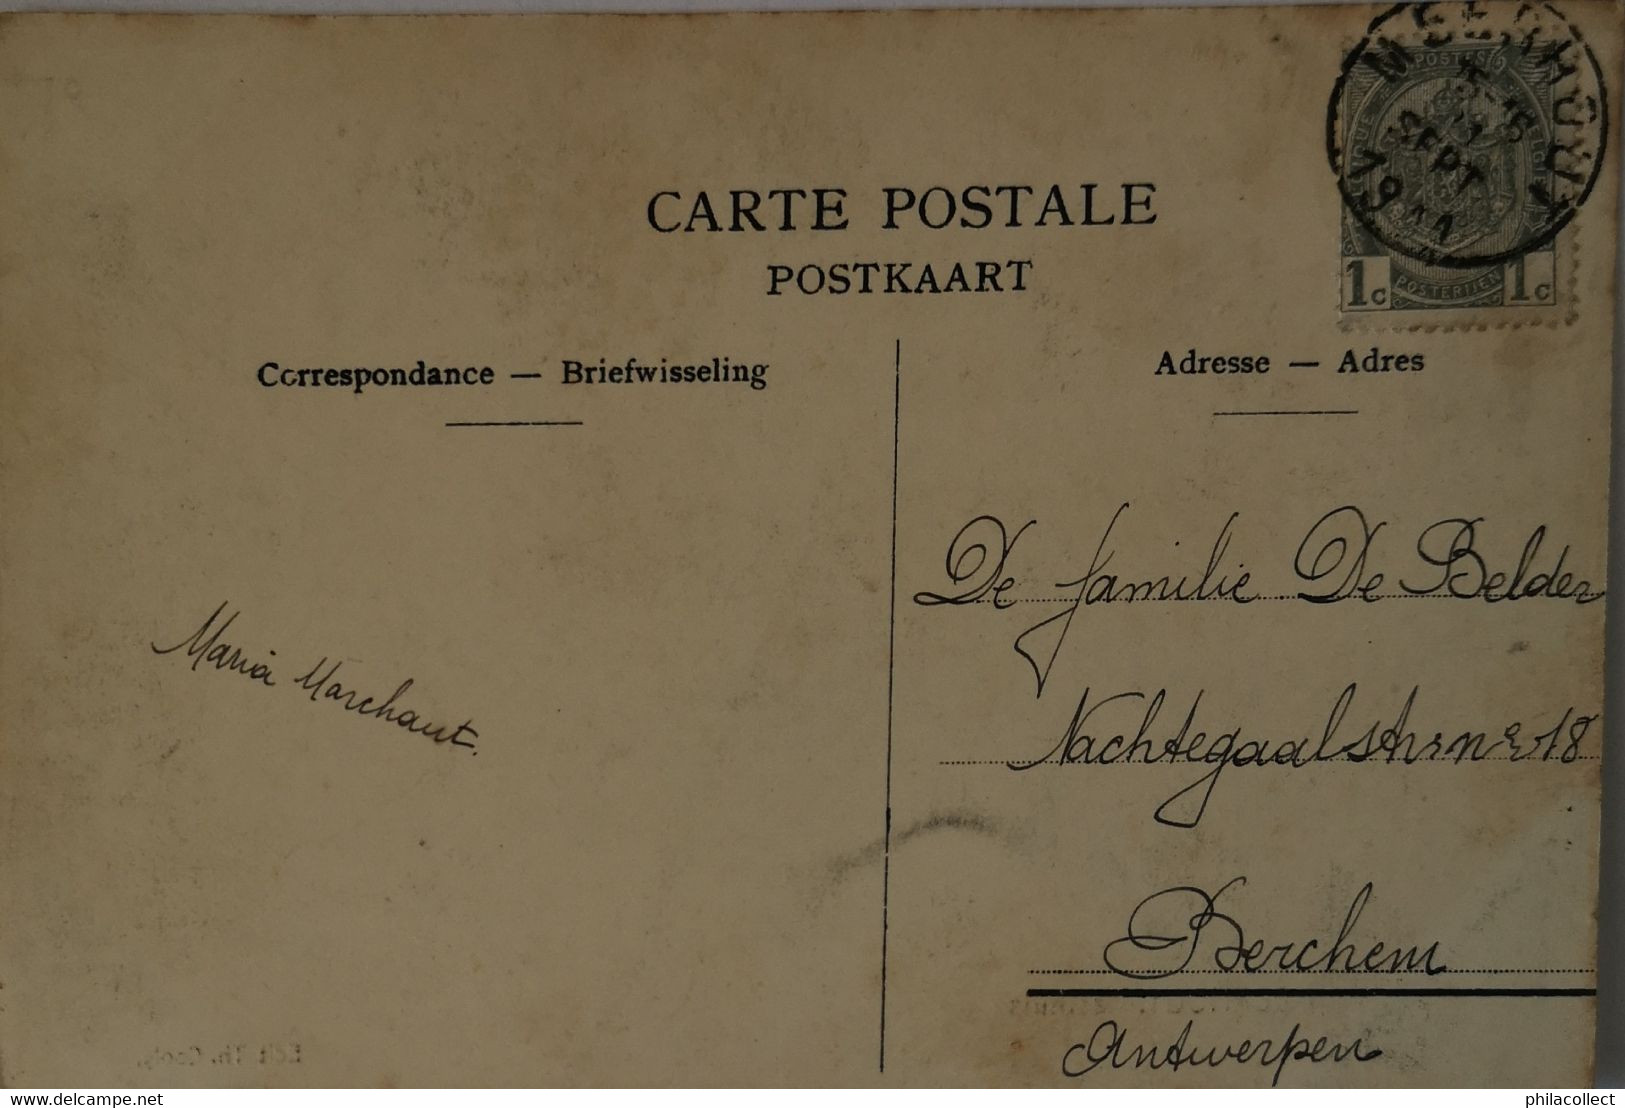 MEERHOUT
POSTES
15-16
11
SEPT
1911
1c POSTERIJEN 1c
CARTE POSTALE
POSTKAART
Correspondance — Briefwisseling
Adresse — Adres
De familie De Belder
Nachtegaalstr n° 18
Berchem
Antwerpen
Maria Marchant.
Edit. Th. Cools.
delcampe.net
philacollect